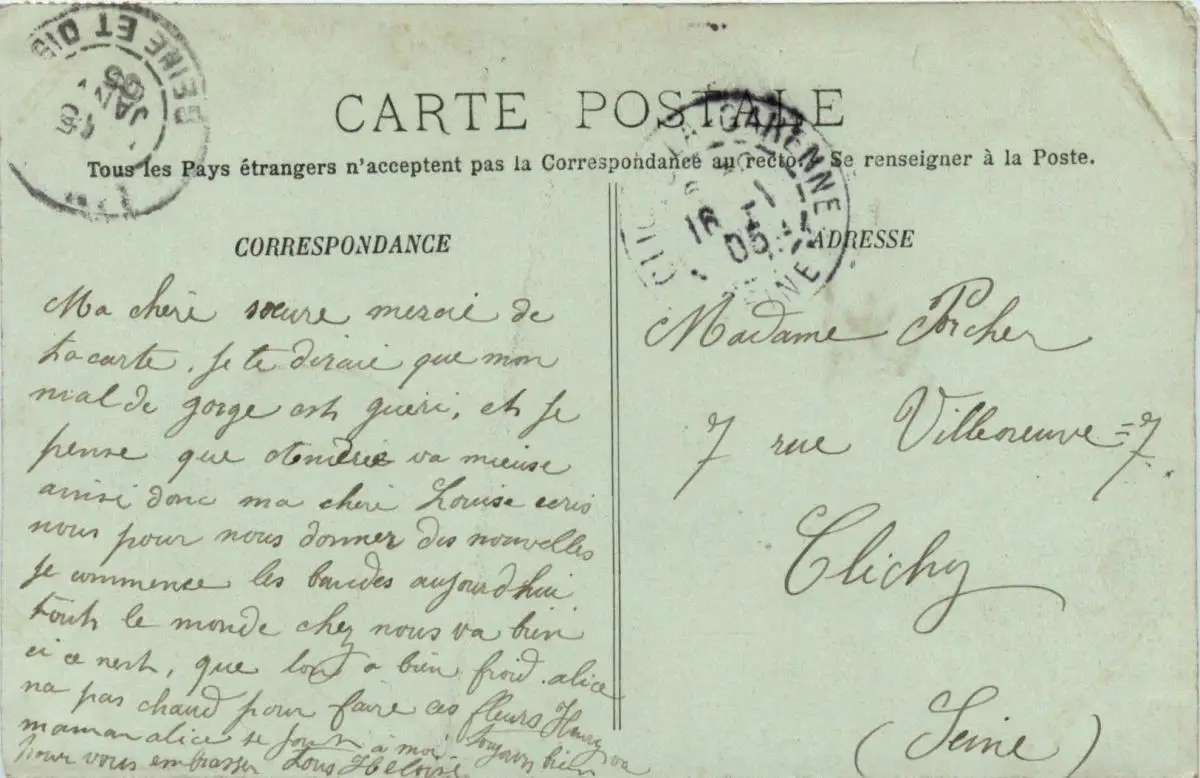 SEINE ET OISE
JANV
05
CARTE POSTALE
Tous les Pays étrangers n'acceptent pas la Correspondance au recto. Se renseigner à la Poste.
LA GARENNE
16
1
05
CORRESPONDANCE
Ma chèri soeure mercie de
ta carte, je te diraie que mon
mal de gorge est guéri, et je
pense que va mieuse
ainsi donc ma chèri Louise ecris
nous pour nous donner des nouvelles
je commence les bandes aujourd'hui
touts le monde chez nous va bien
ci ce nest, que lon a bien froid. alice
na pas chaud pour faire ces fleurs Henry va
toujours bien
maman alice se joint à moi
pour vous embrasser tous Héloïse
ADRESSE
Madame Porcher
7 rue Villeneuve = 7.
Clichy
(Seine)